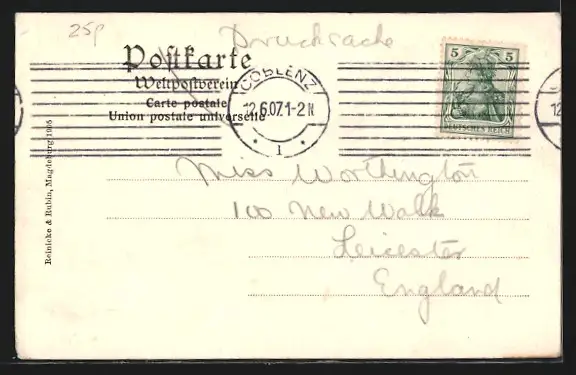 25p
Drucksache
Postkarte
Weltpostverein
Carte postale
Union postale universelle
COBLENZ
12.6.07.1-2N
* 1 *
5 5
DEUTSCHES REICH
Miss Worthington
100 New Walk
Leicester
England
Reinicke & Rubin, Magdeburg 1905
12